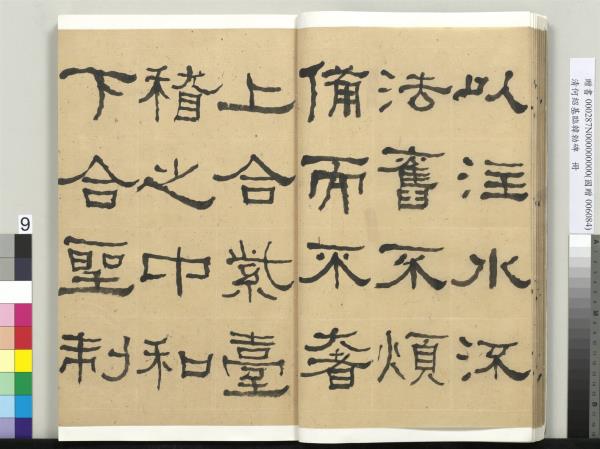 以注水流
法舊不煩
備而不奢
上合紫臺
稽之中和
下合聖制
贈書 000287N000000000(國贈 006084)
清何紹基臨韓勅碑 冊
9
A
M
B